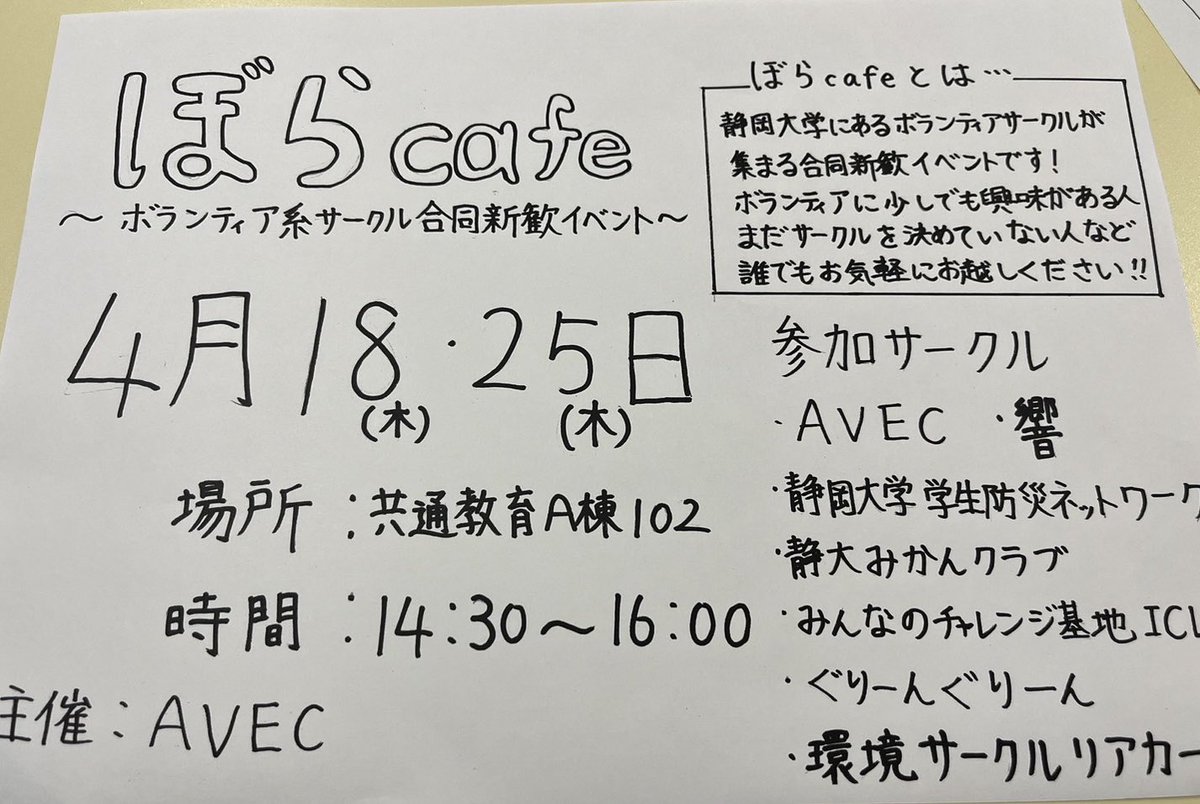 ぼらcafe
～ボランティア系サークル合同新歓イベント～
4月18・25日
(木)
(木)
場所：共通教育A棟102
時間：14:30～16:00
主催：AVEC
ぼらcafeとは…
静岡大学にあるボランティアサークルが
集まる合同新歓イベントです！
ボランティアに少しでも興味がある人
まだサークルを決めていない人など
誰でもお気軽にお越しください!!
参加サークル
・AVEC ・響
・静岡大学学生防災ネットワーク
・静大みかんクラブ
・みんなのチャレンジ基地ICL
・ぐりーんぐりーん
・環境サークルリアカー